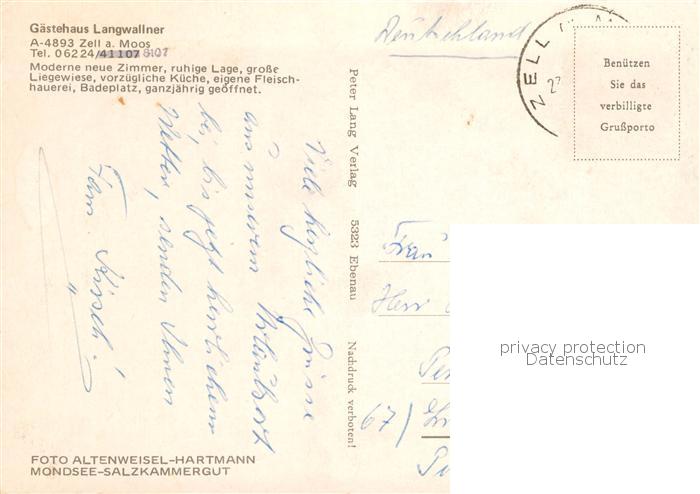 Gästehaus Langwallner
A-4893 Zell a. Moos
Tel. 06224/41107 8107
Moderne neue Zimmer, ruhige Lage, große
Liegewiese, vorzügliche Küche, eigene Fleisch-
hauerei, Badeplatz, ganzjährig geöffnet.
Viele herzliche Grüsse
aus unserem Urlaubsort
bei, bis jetzt herrlichem
Wetter, senden Ihnen
Fam.
FOTO ALTENWEISEL-HARTMANN
MONDSEE-SALZKAMMERGUT
Peter Lang Verlag 5323 Ebenau Nachdruck verboten!
Deutschland
ZELL
Benützen
Sie das
verbilligte
Grußporto
Frau
Herr
67/
privacy protection
Datenschutz